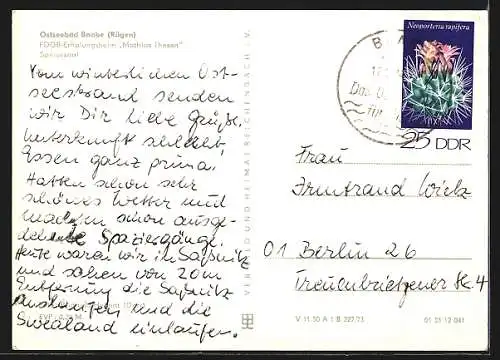 Ostseebad Baabe (Rügen)
FDGB-Erholungsheim „Mathias Thesen“
Speisesaal
Vom winterlichen Ost-
seestrand senden
wir Dir liebe Grüße,
Unterkunft schlecht,
Essen ganz prima.
Hatten schon sehr
schönes Wetter und
machen schon ausge-
dehnte Spaziergänge.
Heute waren wir in Saßnitz
und sahen von 20m
Entfernung die Saßnitz
auslaufen und die
Svealand einlaufen.
EVP
M
VERLAG
HEIMAT REICHENBACH I. V.
V-11-50 A 1 B 227/73
01 01 12 041
Neoporteria rapifera
25 DDR
BA
17
Das O
für
Frau
Irmtraud Wielk
01 Berlin 26
Treuenbrietzener Str. 4